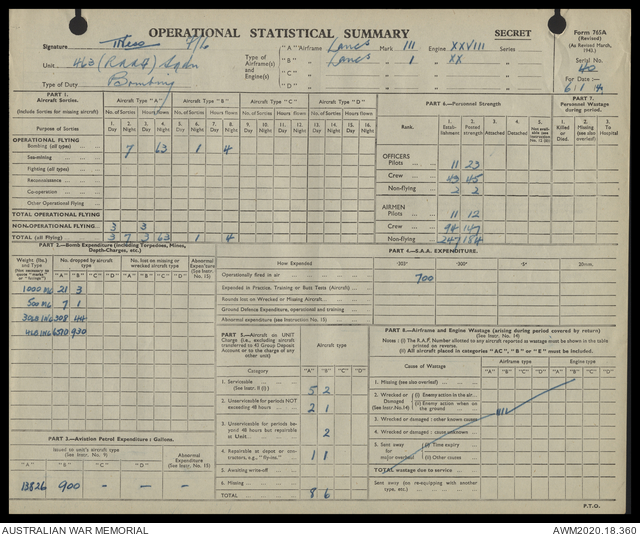 OPERATIONAL STATISTICAL SUMMARY
SECRET
Form 765A
(Revised)
(As Revised March, 1943.)
Serial No.
40
For Date :—
6/1/44
Signature
9/16
Unit 463 (RAAF) Sqdn
Type of Duty Bombing
Type of Airframe(s) and Engine(s)
"A" Airframe Lancs Mark III Engine XXVIII Series
"B" Lancs 1 XX
"C"
"D"
PART 1.
Aircraft Sorties.
(Include Sorties for missing aircraft)
Aircraft Type "A" Aircraft Type "B" Aircraft Type "C" Aircraft Type "D"
No. of Sorties Hours flown No. of Sorties Hours flown No. of Sorties Hours flown No. of Sorties Hours flown
Purpose of Sorties
1. Day 2. Night 3. Day 4. Night 5. Day 6. Night 7. Day 8. Night 9. Day 10. Night 11. Day 12. Night 13. Day 14. Night 15. Day 16. Night
OPERATIONAL FLYING
Bombing (all types) 7 63 1 4
Sea-mining
Fighting (all types)
Reconnaissance
Co-operation
Other Operational Flying
TOTAL OPERATIONAL FLYING
NON-OPERATIONAL FLYING 3 3
TOTAL (all Flying) 3 7 3 63 1 4
PART 6.—Personnel Strength
Rank.
1. Establishment
2. Posted strength
3. Attached
4. Detached
OFFICERS
Pilots 11 23
Crew 49 45
Non-flying 2 2
AIRMEN
Pilots 11 12
Crew 94 147
Non-flying 247 184
PART 7.
Personnel Wastage during period.
1. Killed or Died.
2. Missing (see also overleaf)
3. To Hospital
PART 2.—Bomb Expenditure (including Torpedoes, Mines, Depth-Charges, etc.)
Weight (lbs.) and Type
No. dropped by aircraft type
No. lost on missing or wrecked aircraft type
Abnormal Expenditure (See Instr. 15)
"A" "B" "C" "D" "A" "B" "C" "D"
1000 MC 21 3
500 MC 7 1
30LB INC 508 44
4LB INC 6570 930
PART 4.—S.A.A. EXPENDITURE.
How Expended
·303" ·300" ·5" 20mm.
Operationally fired in air 700
Expended in Practice, Training or Butt Tests (Aircraft)
Rounds lost on Wrecked or Missing Aircraft
Ground Defence Expenditure, operational and training
Abnormal expenditure (see Instruction No. 15)
PART 5.—Aircraft on UNIT Charge (i.e., excluding aircraft transferred to 43 Group Deposit Account or to the charge of any other unit)
Aircraft type
Category
"A" "B" "C" "D"
1. Serviceable (See Instr. 11 (i) ) 5 2
2. Unserviceable for periods NOT exceeding 48 hours 2 1
3. Unserviceable for periods beyond 48 hours but repairable at Unit 2
4. Repairable at depot or contractors, e.g., "fly-ins." 1 1
5. Awaiting write-off
6. Missing
TOTAL 8 6
PART 8.—Airframe and Engine Wastage (arising during period covered by return)
(See Instr. No. 14)
Notes : (i) The R.A.F. Number allotted to any aircraft reported as wastage must be shown in the table printed on reverse.
(ii) All aircraft placed in categories "AC," "B" or "E" must be included.
Cause of Wastage
Airframe type
Engine type
"A" "B" "C" "D" "A" "B" "C" "D"
1. Missing (see also overleaf)
2. Wrecked or Damaged (See Instr. No.14)
(i) Enemy action in the air
(ii) Enemy action when on the ground
3. Wrecked or damaged : other known causes
4. Wrecked or damaged : cause unknown
5. Sent away for major overhaul
(i) Time expiry
(ii) Other cause
NIL
TOTAL wastage due to service
Sent away (no re-equipping with another type, etc.)
PART 3.—Aviation Petrol Expenditure : Gallons.
Issued to unit's aircraft type (See Instr. No. 9)
Abnormal Expenditure (See Instr. No. 15)
"A" "B" "C" "D"
13826 900 – – –
P.T.O.
AUSTRALIAN WAR MEMORIAL
AWM2020.18.360